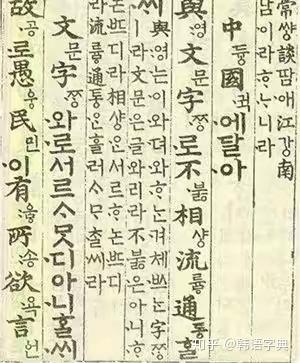 常썅談땀애江강南
남이라ᄒᆞᄂᆞ니라
中듕國귁에달아
與영文문字ᄍᆞᆼ로不부ᇙ相샹流륳通통ᄒᆞᆯ
ᄊᆡ與영는이와뎌와ᄒᆞᄂᆞᆫ겨체ᄡᅳ는字ᄍᆞᆼ
ㅣ라文문은글와리라不부ᇙ은아니ᄒᆞ
논ᄠᅳ디라相샹ᄋᆞᆫ서르ᄒᆞ논ᄠᅳ디
라流륳通통ᄋᆞᆫ흘러ᄉᆞᄆᆞᄎᆞᆯ씨라
文문字ᄍᆞᆼ와로서르ᄉᆞᄆᆞᆺ디아니ᄒᆞᆯᄊᆡ
故공로愚웅民민이有ᅌᅮᇢ所송欲욕言언
知乎 @韩语字典